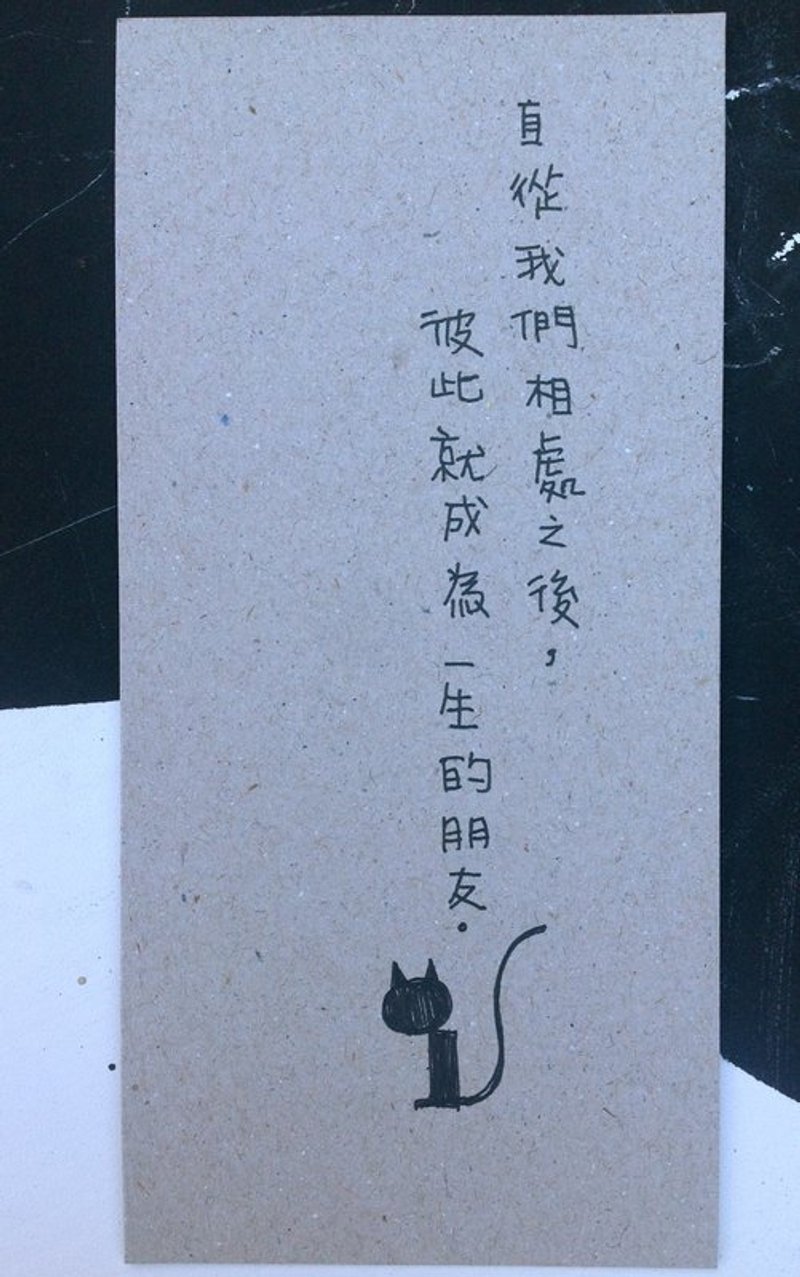 自從我們相處之後，
彼此就成為一生的朋友。